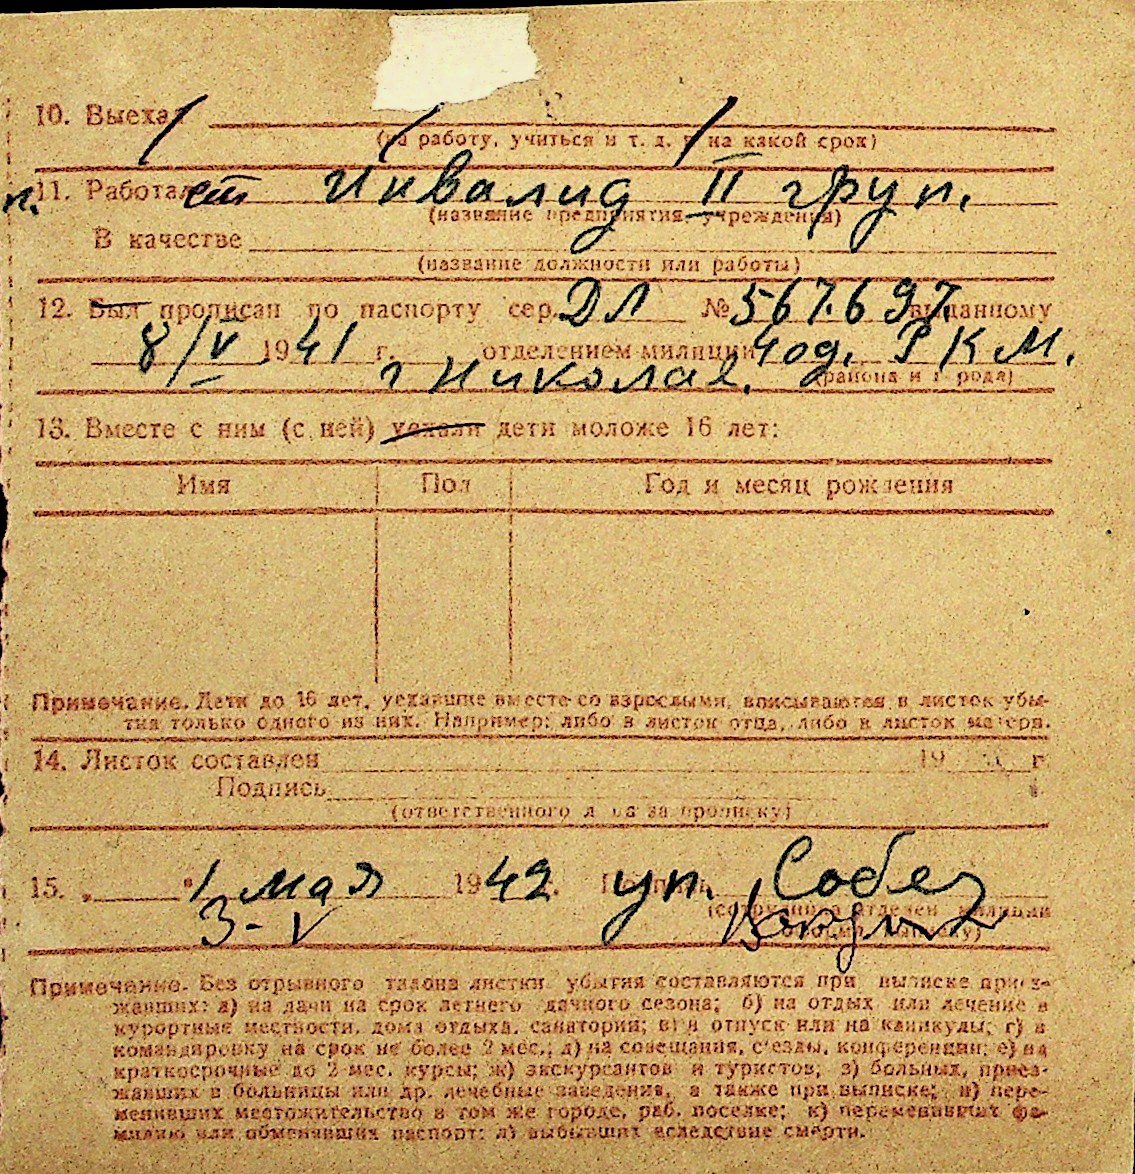 10. Выехал
(на работу, учиться и т. д. и на какой срок)
п. 11. Работает Инвалид II груп.
(название предприятия учреждения)
В качестве
(название должности или работы)
12. Был прописан по паспорту сер. ДЛ № 567.697 выданному
8/V 1941 г. отделением милиции 4 од. РКМ.
г Николаев. (района и города)
13. Вместе с ним (с ней) уехали дети моложе 16 лет:
Имя Пол Год и месяц рождения
Примечание. Дети до 16 лет, уехавшие вместе со взрослыми, вписываются в листок убы-
тия только одного из них. Например: либо в листок отца, либо в листок матери.
14. Листок составлен 19 г.
Подпись
(ответственного лица за прописку)
15. „ " 1 мая 1942 г. уп. Собез
(сотрудника отделен. милиции
3-V
Примечание. Без отрывного талона листки убытия составляются при выписке приез-
жавших: а) на дачи на срок летнего дачного сезона; б) на отдых или лечение в
курортные местности, дома отдыха, санатории; в) в отпуск или на каникулы; г) в
командировку на срок не более 2 мес.; д) на совещания, с'езды, конференции; е) на
краткосрочные до 2 мес. курсы; ж) экскурсантов и туристов; з) больных, приез-
жавших в больницы или др. лечебные заведения, а также при выписке; и) пере-
менивших местожительство в том же городе, раб. поселке; к) переменивших фа-
милию или обменявших паспорт; л) выбывших вследствие смерти.